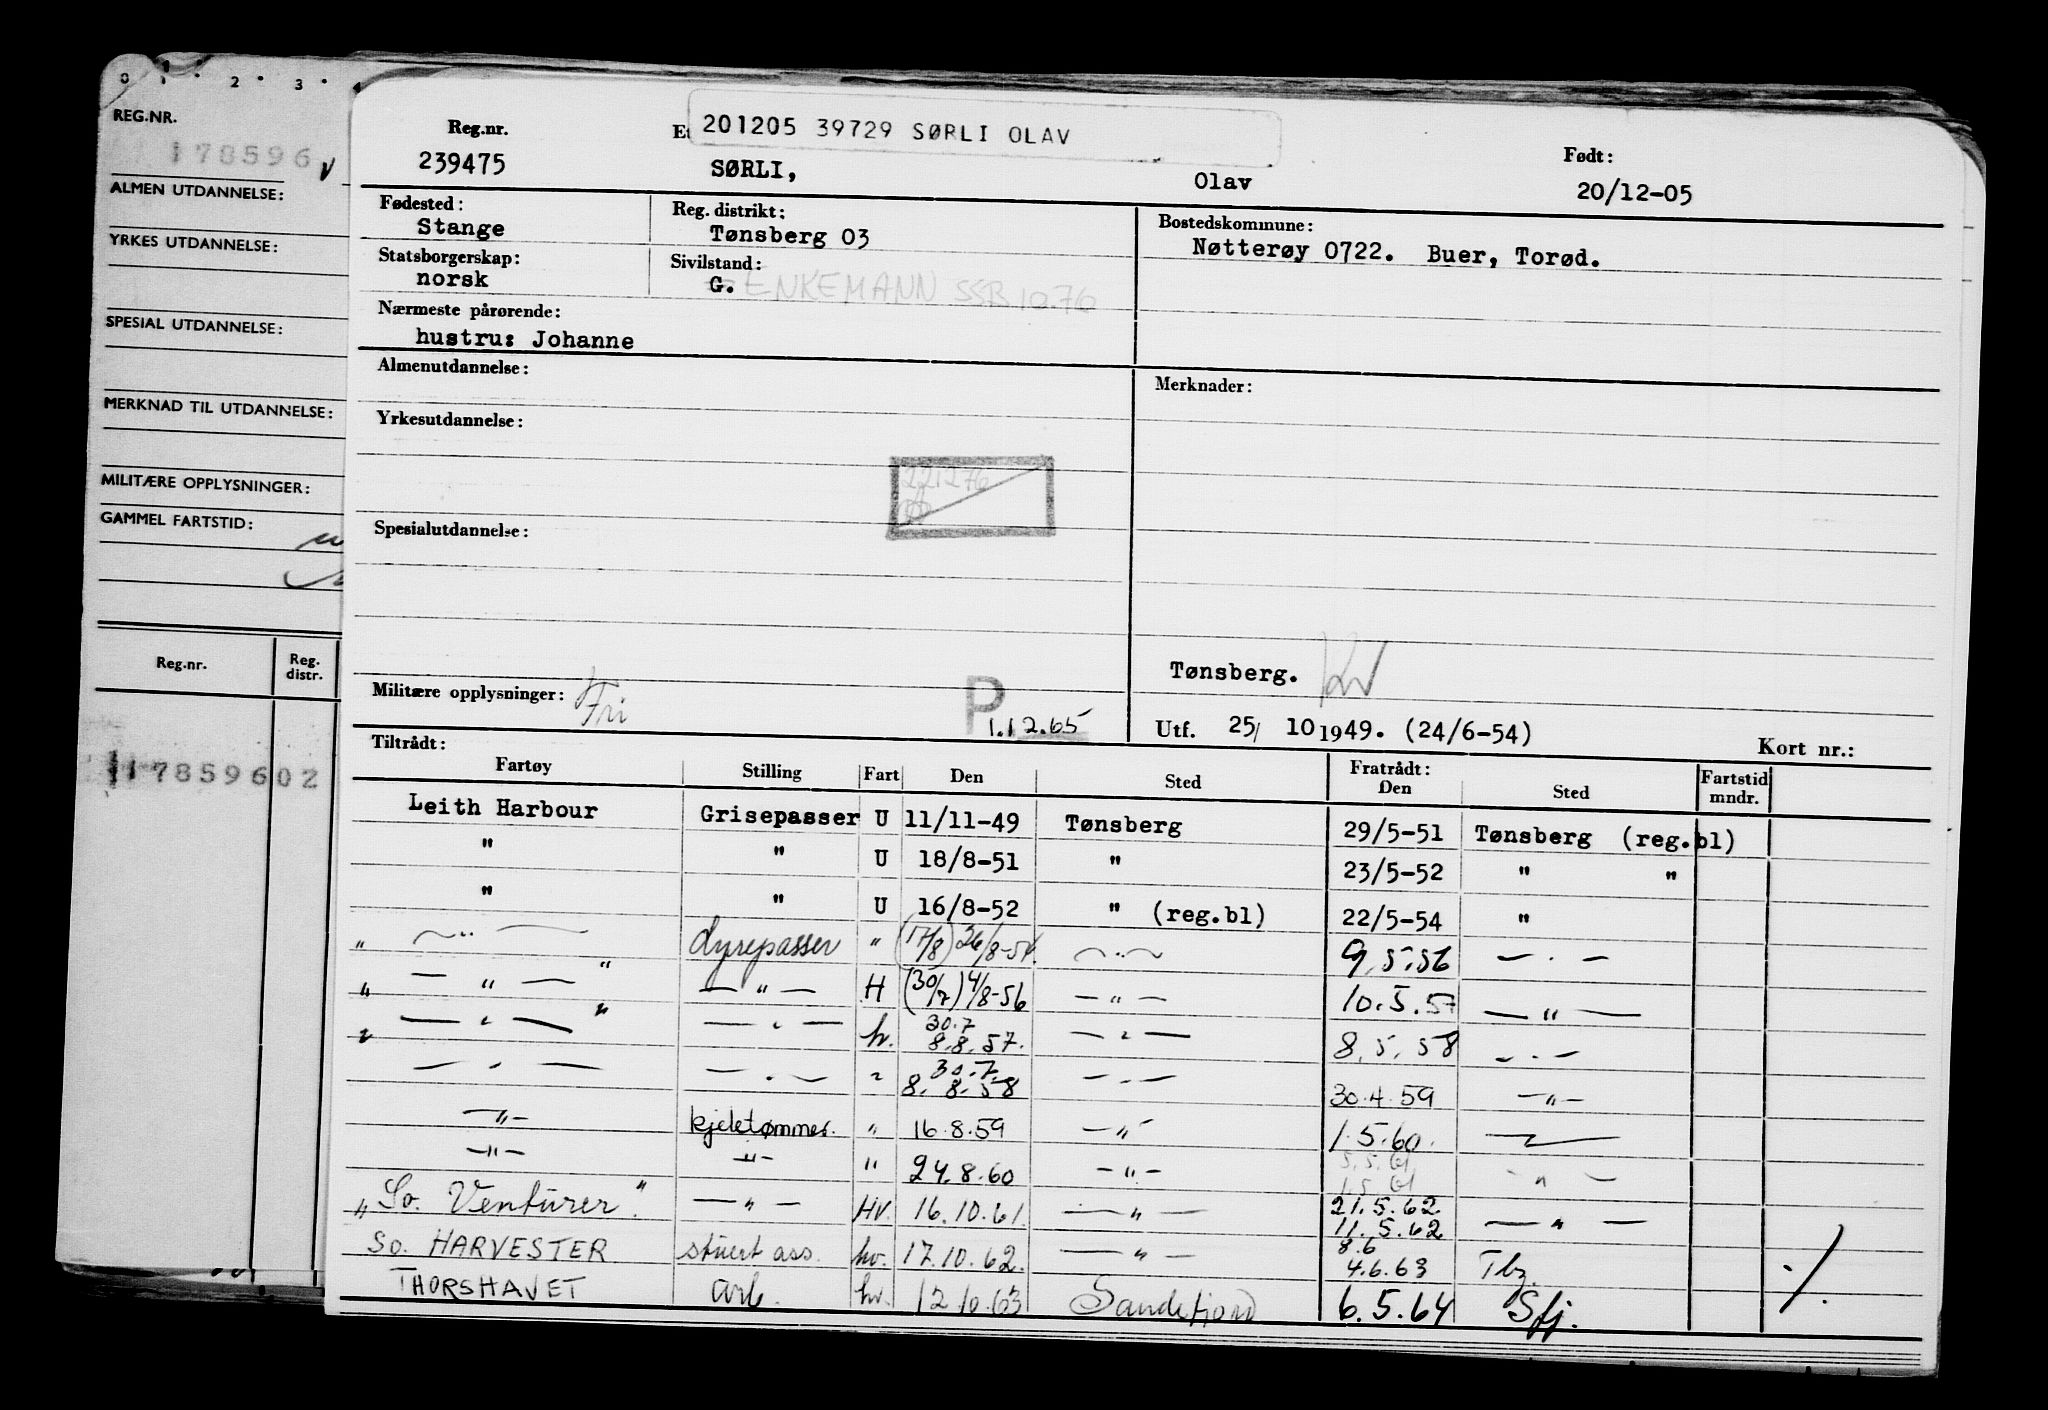 0 1 2 3 4
REG.NR.
178596 v
ALMEN UTDANNELSE:
YRKES UTDANNELSE:
SPESIAL UTDANNELSE:
MERKNAD TIL UTDANNELSE:
MILITÆRE OPPLYSNINGER:
GAMMEL FARTSTID:
Reg.nr. Reg. distr.
17859602
201205 39729 SØRLI OLAV
Reg.nr. Født:
239475 SØRLI, Olav 20/12-05
Fødested: Reg. distrikt: Bostedskommune:
Stange Tønsberg 03 Nøtterøy 0722. Buer, Torød.
Statsborgerskap: Sivilstand:
norsk G. ENKEMANN SSB 10.76
Nærmeste pårørende:
hustru: Johanne
Almenutdannelse: Merknader:
Yrkesutdannelse:
Spesialutdannelse:
Tønsberg.
Militære opplysninger: Fri P 1.12.65
Utf. 25/ 10 1949. (24/6-54) Kort nr.:
Tiltrådt: Fratrådt:
Fartøy Stilling Fart Den Sted Den Sted Fartstid mndr.
Leith Harbour Grisepasser U 11/11-49 Tønsberg 29/5-51 Tønsberg (reg.bl)
" " U 18/8-51 " 23/5-52 " "
" " U 16/8-52 " (reg.bl) 22/5-54 "
" — " — Dyrepasser " (17/8) 26/8-54. — " — 9.5.56 — " —
" — " — " — " — H (30/7) 4/8-56 — " — 10.5.57 — " —
" — " — " — " — h. 30.7 8.8.57. — " — 8.5.58 — " —
— " — — " — " 30.7. 8.8.58 — " — 30.4.59 — " —
— " — kjeletømmer. " 16.8.59 — " — 1.5.60. — " —
— " — — " — " 24.8.60 — " — 5.5.61 1.5.61 — " —
"So. Venturer". — " — Hv. 16.10.61. — " — 21.5.62 11.5.62 — " —
So. HARVESTER stuert ass. hv. 17.10.62. — " — 8.6 4.6.63 Tbg.
THORSHAVET arb. hv. 12.10.63 Sandefjord 6.5.64 Sfj.